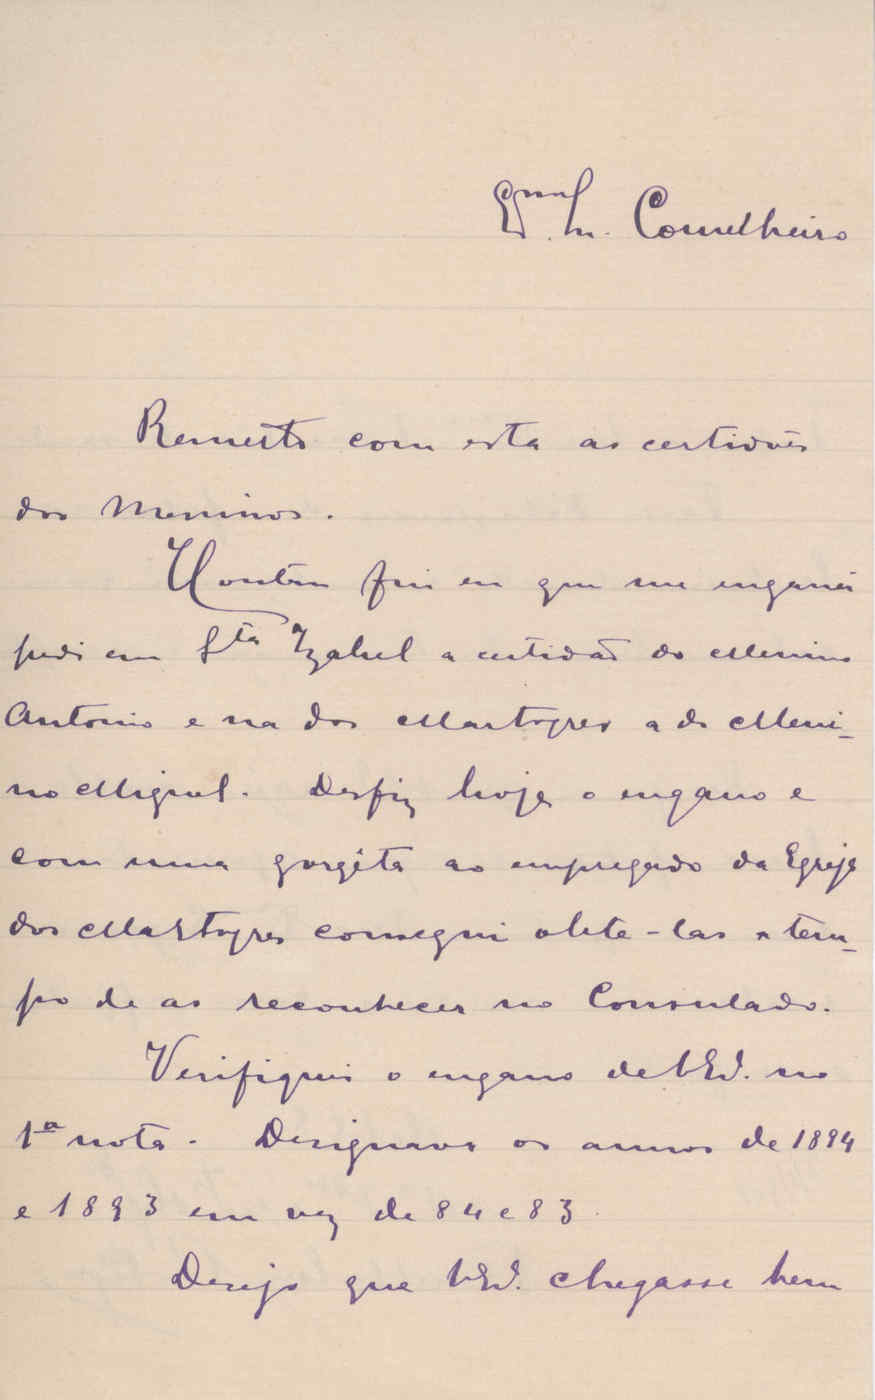 Exmo. Sr. Conselheiro
Remetto com esta as certidões
dos Meninos.
Hontem fui eu que me enganei
pedi em Sta Izabel a certidão do Menino
Antonio e na dos Martyres a do Meni-
no Miguel. Desfiz hoje o engano e
com uma gorgêta ao empregado da Egreja
dos Martyres consegui obte-las a tem-
po de as reconhecer no Consulado.
Verifiquei o engano de V.Exa. na
1ª nota. Designava os annos de 1894
e 1893 em vez de 84 e 83.
Desejo que V.Exa. chegasse bem